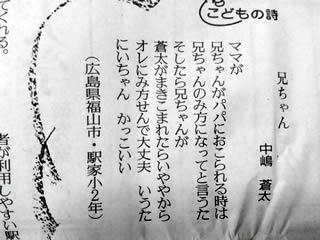 こどもの詩
兄ちゃん
中嶋 蒼太
ママが
兄ちゃんがパパにおこられる時は
兄ちゃんのみ方になってと言うた
そしたら兄ちゃんが
蒼太がまきこまれたらいややから
オレにみ方せんで大丈夫 いうた
にいちゃん かっこいい
(広島県福山市・駅家小2年)
てくれる。
者が利用しやすい駅